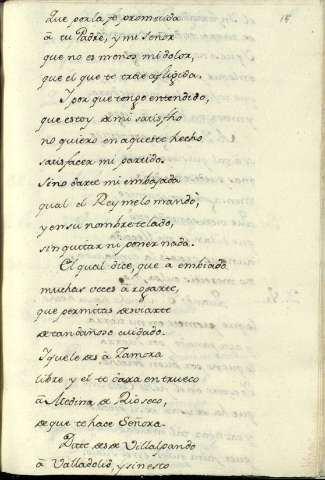 15
Que por la fe prometida
à tu Padre, y mi Señor
que no es menos mi dolor,
que el que te trae afligida.
Y por que tengo entendido,
que estoy de mi satisfho
no quiero en aqueste hecho
satisfacer mi partido.
Sino darte mi embajada
qual el Rey me lo mandò,
y en su nombre te la do,
sin quitar ni poner nada.
El qual dice, que à embiado
muchas veces à rogarte,
que permitas desviarte
de tan dañoso cuidado.
Y que le des à Zamora
libre y el te dara en trueco
à Medina de Rioseco,
de que te hace Señora.
Darte desde Villalpando
à Valladolid, y sin esto